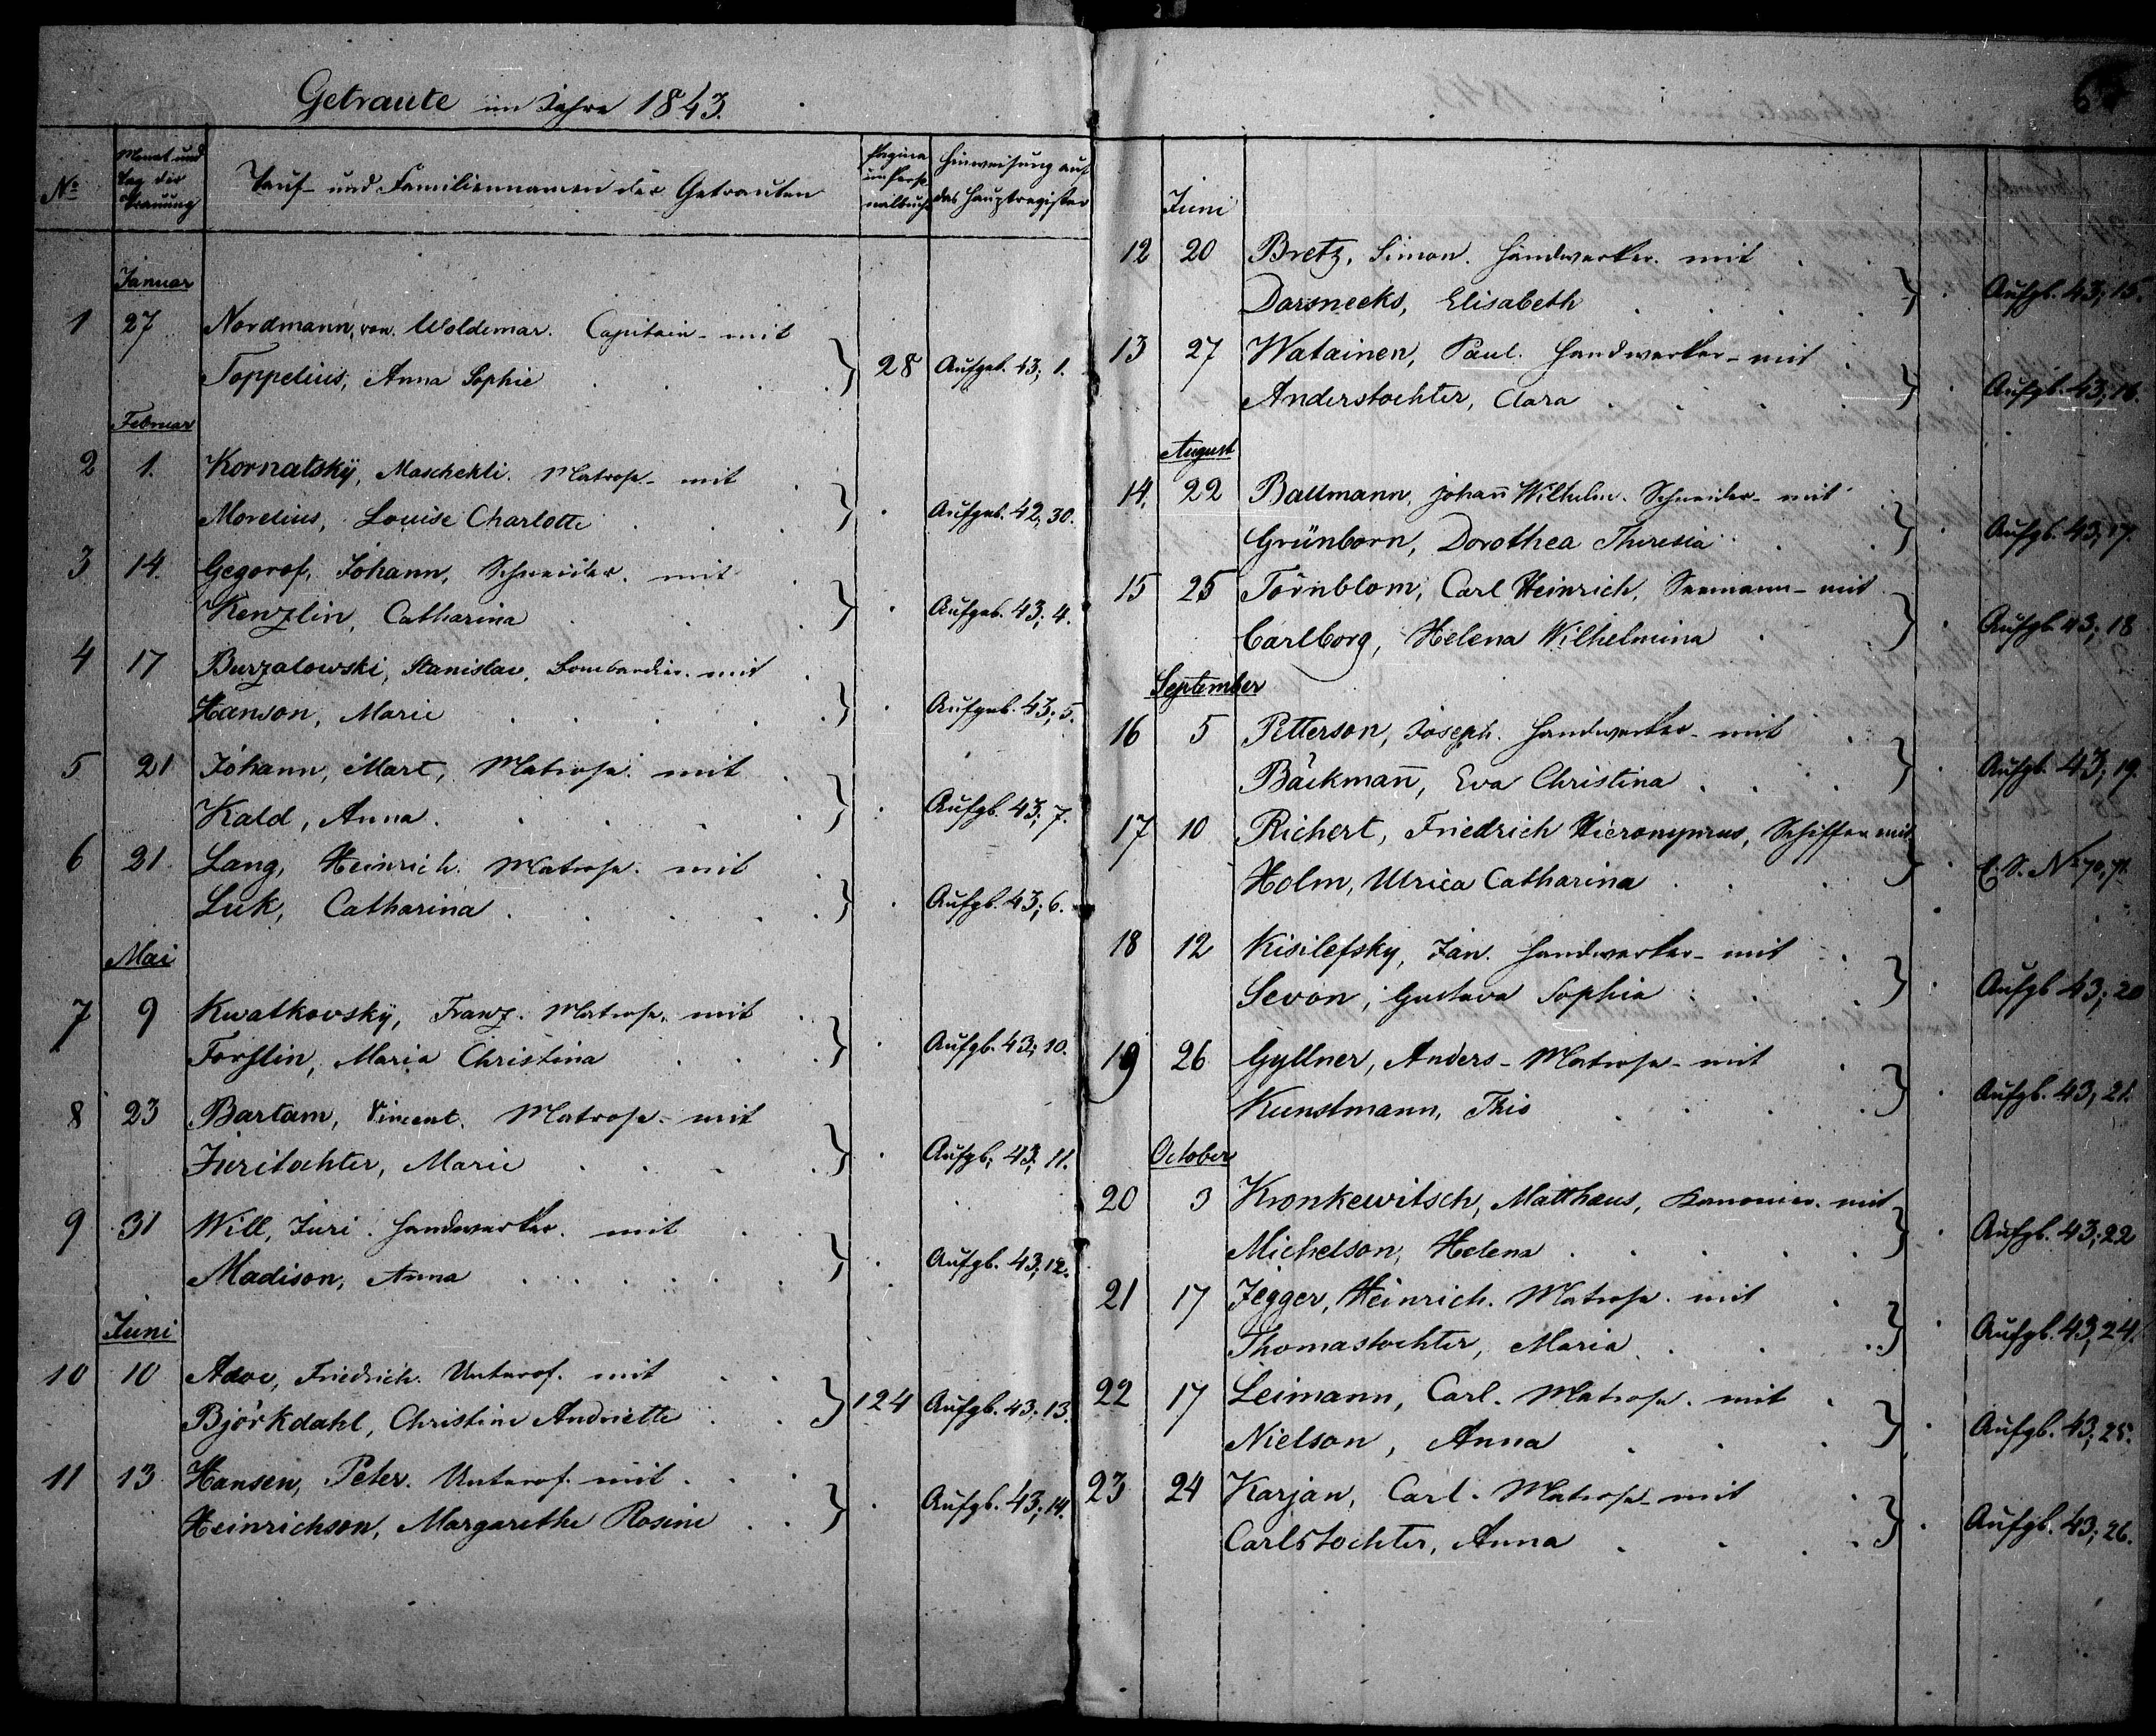 Getraute im Jahre 1843.
No
Monat und Tag der Trauung
Tauf- und Familiennamen der Getrauten
Pagina im Personalbuch
Hinweisung auf das Hauptregister
Januar
1 27 Nordmann, von. Woldemar. Capitain - mit
Toppelius, Anna Sophie } 28 Aufgeb. 43; 1.
Februar
2 1. Kornatskÿ, Maschekli. Matrose - mit
Morelius, Louise Charlotte } Aufgeb. 42; 30.
3 14. Gegorof, Johann, Schneider. mit
Kenzlin, Catharina } Aufgeb. 43; 4.
4 17 Burzalowski, Stanislav, Bombardier. mit
Hanson, Marie } Aufgeb. 43; 5.
5 21 Johann, Mart, Matrose. mit
Kald, Anna. } Aufgb. 43; 7.
6 21. Lang, Heinrich. Matrose. mit
Luk, Catharina } Aufgb. 43; 6.
Mai
7 9 Kwatkovskÿ, Franz. Matrose. mit
Forslin, Maria Christina } Aufgb. 43; 10.
8 23 Bartam, Vincent. Matrose - mit
Juritochter, Marie } Aufgb. 43; 11.
9 31 Will, Juri. Handwerker. mit
Madison, Anna } Aufgb. 43; 12.
Juni
10 10 Adoe, Friedrich. Unterof. mit
Björkdahl, Christine Andriette } 124 Aufgb. 43; 13.
11 13 Hansen, Peter. Unterof. mit
Heinrichson, Margarethe Rosine } Aufgb. 43; 14.
Juni
12 20 Bretz, Simon. Handwerker. mit
Darsneeks, Elisabeth } Aufgb. 43; 15.
13 27 Watainen, Paul. Handwerker - mit
Anderstochter, Clara } Aufgb. 43; 16.
August
14. 22 Ballmann, Johan̄ Wilhelm. Schneider - mit
Grünborn, Dorothea Theresia } Aufgb. 43; 17.
15 25 Törnblom, Carl Heinrich, Seemann - mit
Carlborg, Helena Wilhelmina } Aufgb. 43; 18
September
16 5 Petterson, Joseph. Handwerker - mit
Bäckman̄, Eva Christina } Aufgb. 43; 19.
17 10 Richert, Friedrich Hieronymus, Schiffer mit
Holm, Ulrica Catharina } No 70, 71.
18 12 Kisilefsky, Jan. Handwerker - mit
Sevon, Gustava Sophia } Aufgb 43; 20
19 26 Gyllner, Anders - Matrose - mit
Kunstmann, Thio } Aufgb. 43; 21.
October
20 3 Kronkewitsch, Matthæus, Kanonier. mit
Michelson, Helena } Aufgb. 43; 22
21 17 Jegger, Heinrich. Matrose. mit
Thomastochter, Maria } Aufgb. 43; 24.
22 17 Leimann, Carl. Matrose. mit
Nielson, Anna } Aufgb. 43; 25.
23 24 Karjan, Carl. Matrose - mit
Carlstochter, Anna } Aufgb. 43; 26.